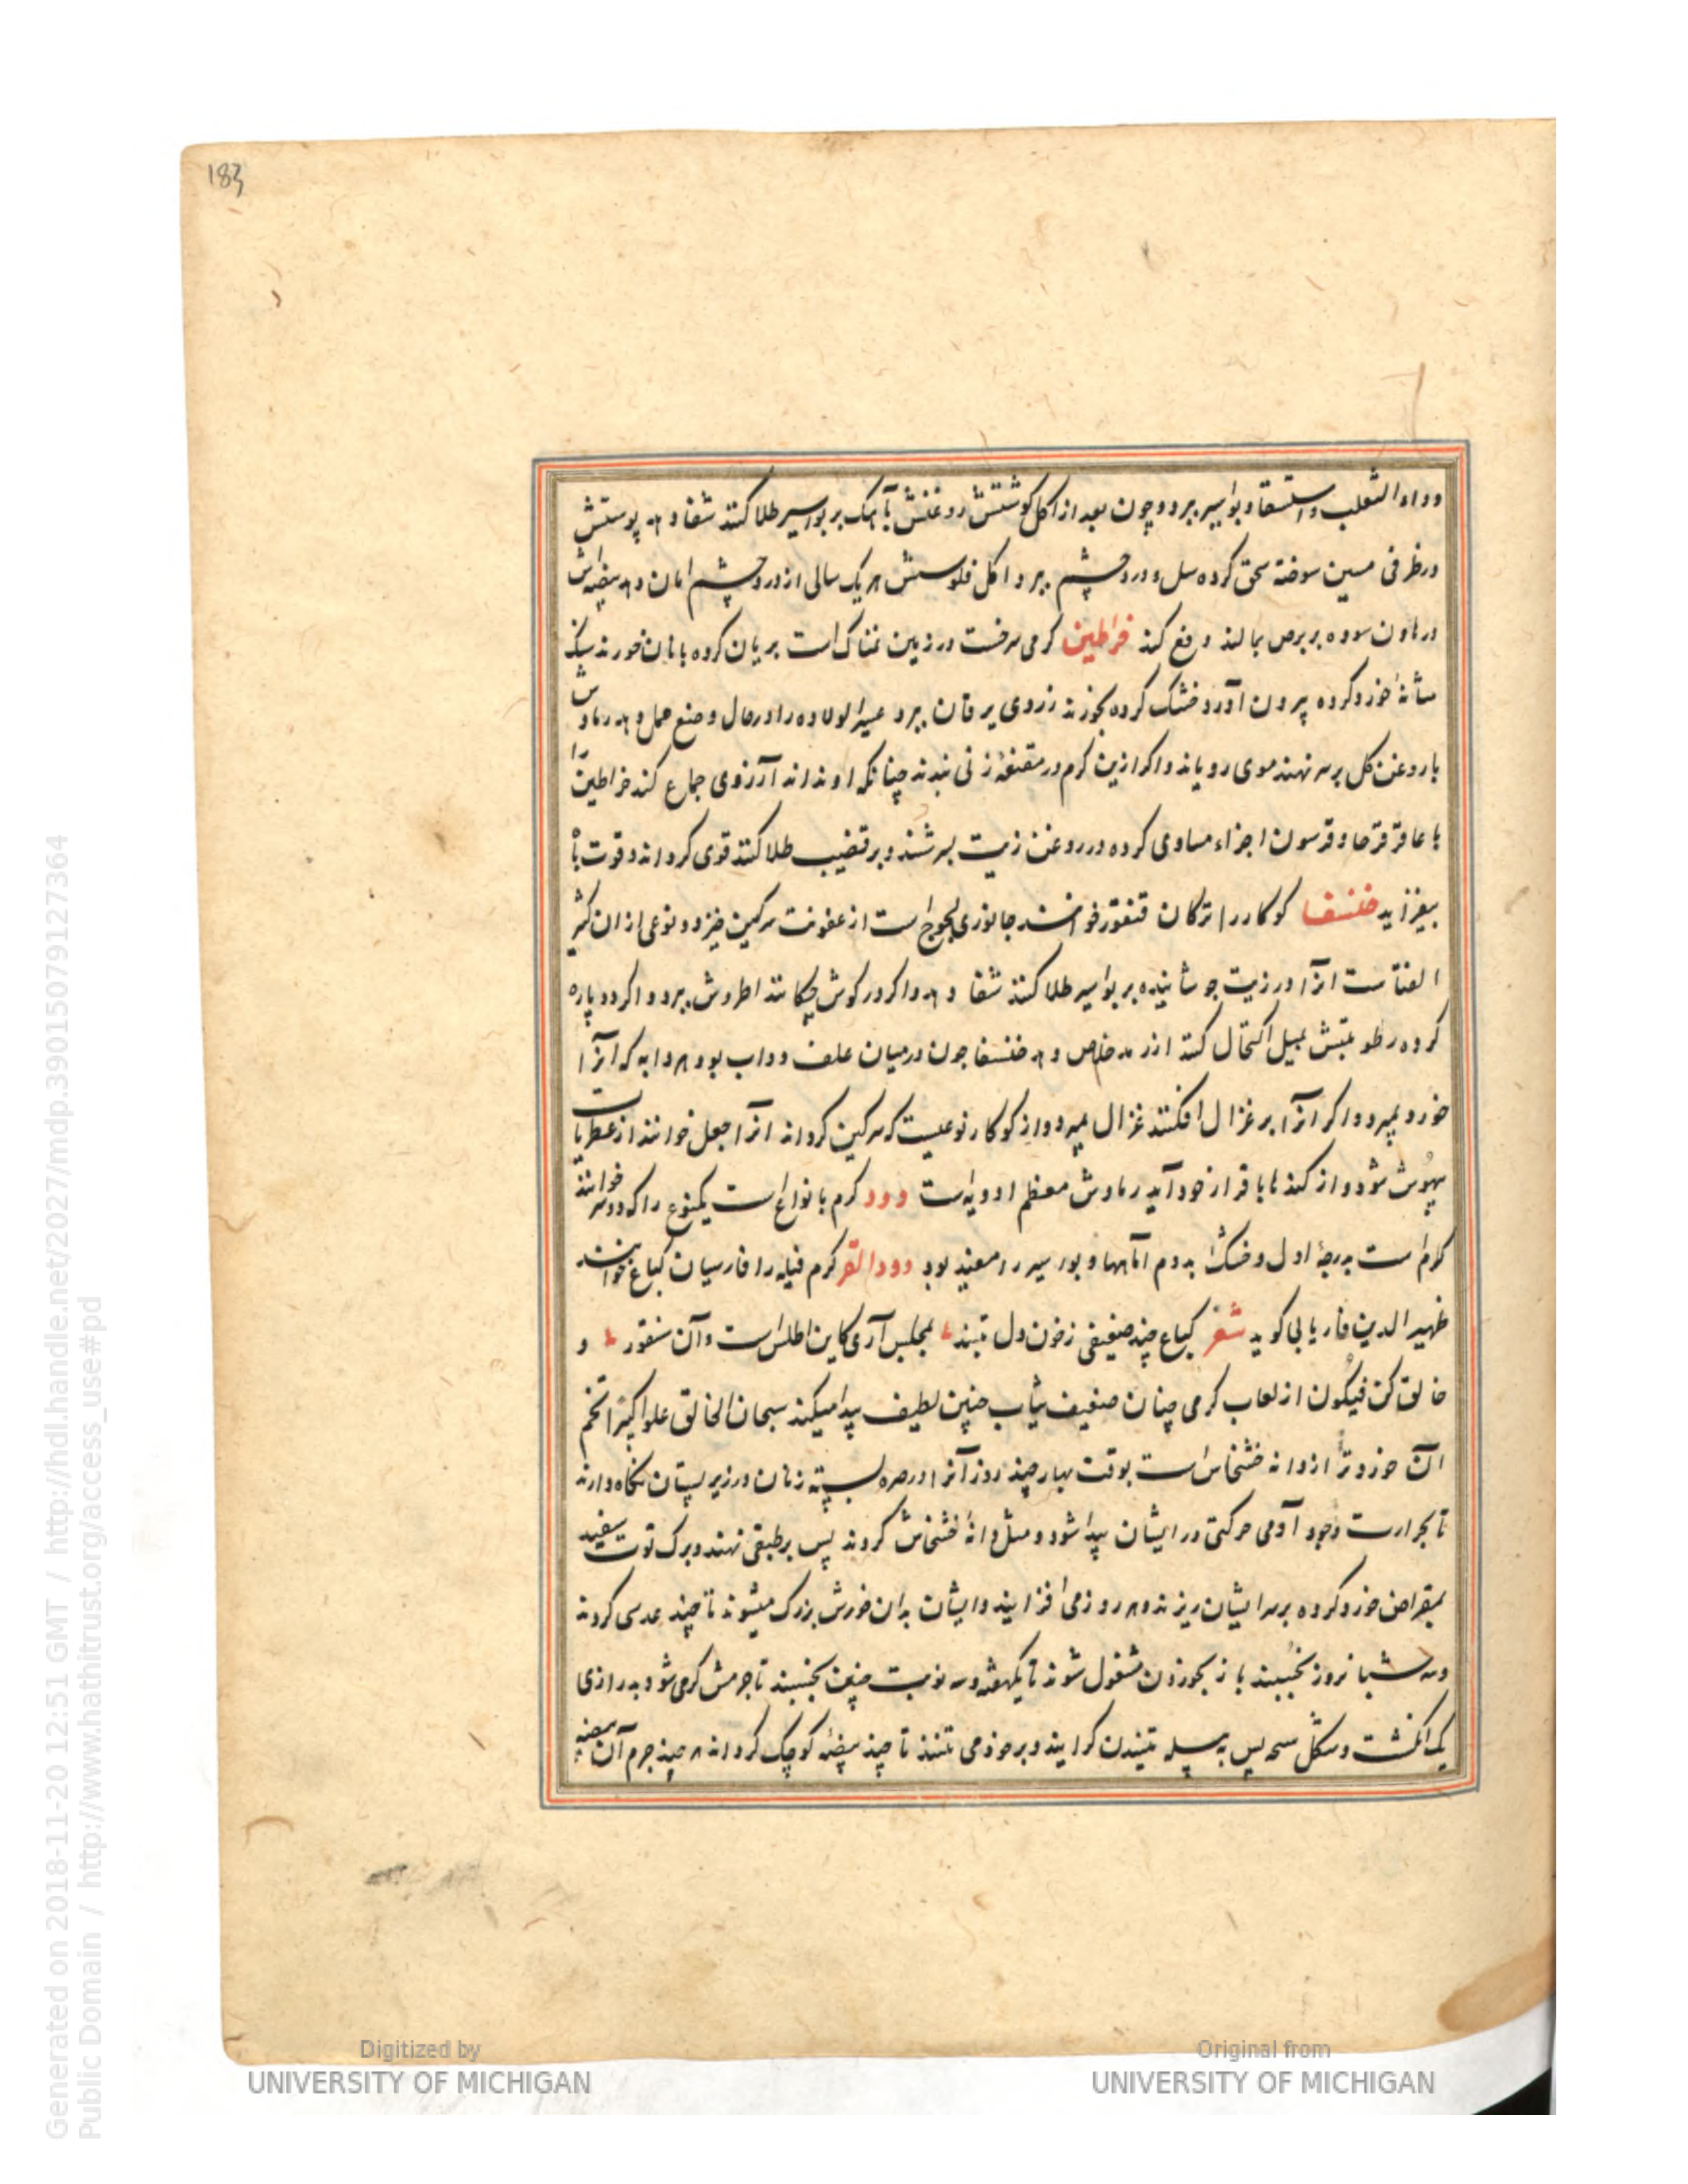 183
وداء الثعلب و استسقا و بواسیر ببرد و چون بعد از اکل کوشتش روغنش با آهک بر بواسیر طلا کنند شفا دهد پوستش
در ظرفی مسین سوخته سحق کرده سل و درد چشم ببرد و اکل فلوسش هر یک سالی از درد چشم امان دهد بیضه‌اش
در هاون سوده بر برص بمالند دفع کند خراطین کرمی سرخست در زمین نمناک است بریان کرده با نان خورند سنک
مثانه خورد کرده بیرون آورد و خشک کرده بخورند زردی یرقان ببرد عسیر الولاده را در حال وضع حمل دهد رمادش
با روغن کل بر سر نهند موی رویاند و اکر ازین کرم در مقنعه زنی بندند چنانکه او نداند آرزوی جماع کند خراطین را
با عاقرقرحا و قرسون اجزاء مساوی کرده در روغن زیت بسرشند و بر قضیب طلا کنند قوی کرداند و قوت باه
بیفزاید خنفسا کوکار را ترکان قنغوز خوانند جانوری لجوج است از عفونت سرکین خیزد و نوعی از ان کثیر
الفتا ست انرا در زیت جوشانیده بر بواسیر طلا کنند شفا دهد و اکر در کوش چکانند اطروش ببرد و اکر دو پاره
کرده رطوبتش بمیل اکتحال کنند از رمد خلاص دهد خنفسا چون در میان علف دواب بود هر دابه که آنرا
خورد بمیرد و اکر آنرا بر غزال افکنند غزال بمیرد و از کوکار نوعیست که سرکین کرداند انرا جعل خوانند از عطریات
بیهوش شود و از کند با قرار خود آید رمادش معظم ادویه است دود کرم بانواع است یکنوع را که دود سر خوانند
کرم است بدرجۀ اول و خشک بدوم آماسها و بواسیر را مفید بود دود القز کرم فیله را فارسیان کباغ خوانند
ظهیر الدین فاریابی کوید شعر کباغ چند ضعیفی زخون دل بتند بمجلس آری کاین اطلس است و آن سنقور و
خالق کن فیکون از لعاب کرمی چنان ضعیف ثیاب چنین لطیف پیدا میکند سبحان الخالق علوا کبیرا تخم
آن خوردتر از دانه خشخاش است بوقت بهار چند روز آنرا در صره بسته زنان در زیر پستان نکاه دارند
تا بحرارت وجود آدمی حرکتی در ایشان پیدا شود و مثل دانۀ خشخاش کردند پس بر طبقی نهند و برک توت سفید
بمقراض خورد کرده بر سر ایشان ریزند و هر روز می افزایند و ایشان بدان خورش بزرک میشوند تا چند عدسی کردند
و سه شبانروز بخسبند باز بخوردن مشغول شوند تا یکهفته و سه نوبت چنین بخسبند تا جرمش کرمی شود بدرازی
یک انکشت و بشکل پس به پیله تنیدن کرایند و بر خود می تنند تا چند بیضۀ کوچک کرداند هر چند جرم آن بیضه
Generated on 2018-11-20 12:51 GMT / http://hdl.handle.net/2027/mdp.39015079127364
Public Domain / http://www.hathitrust.org/access_use#pd
Digitized by
UNIVERSITY OF MICHIGAN
Original from
UNIVERSITY OF MICHIGAN